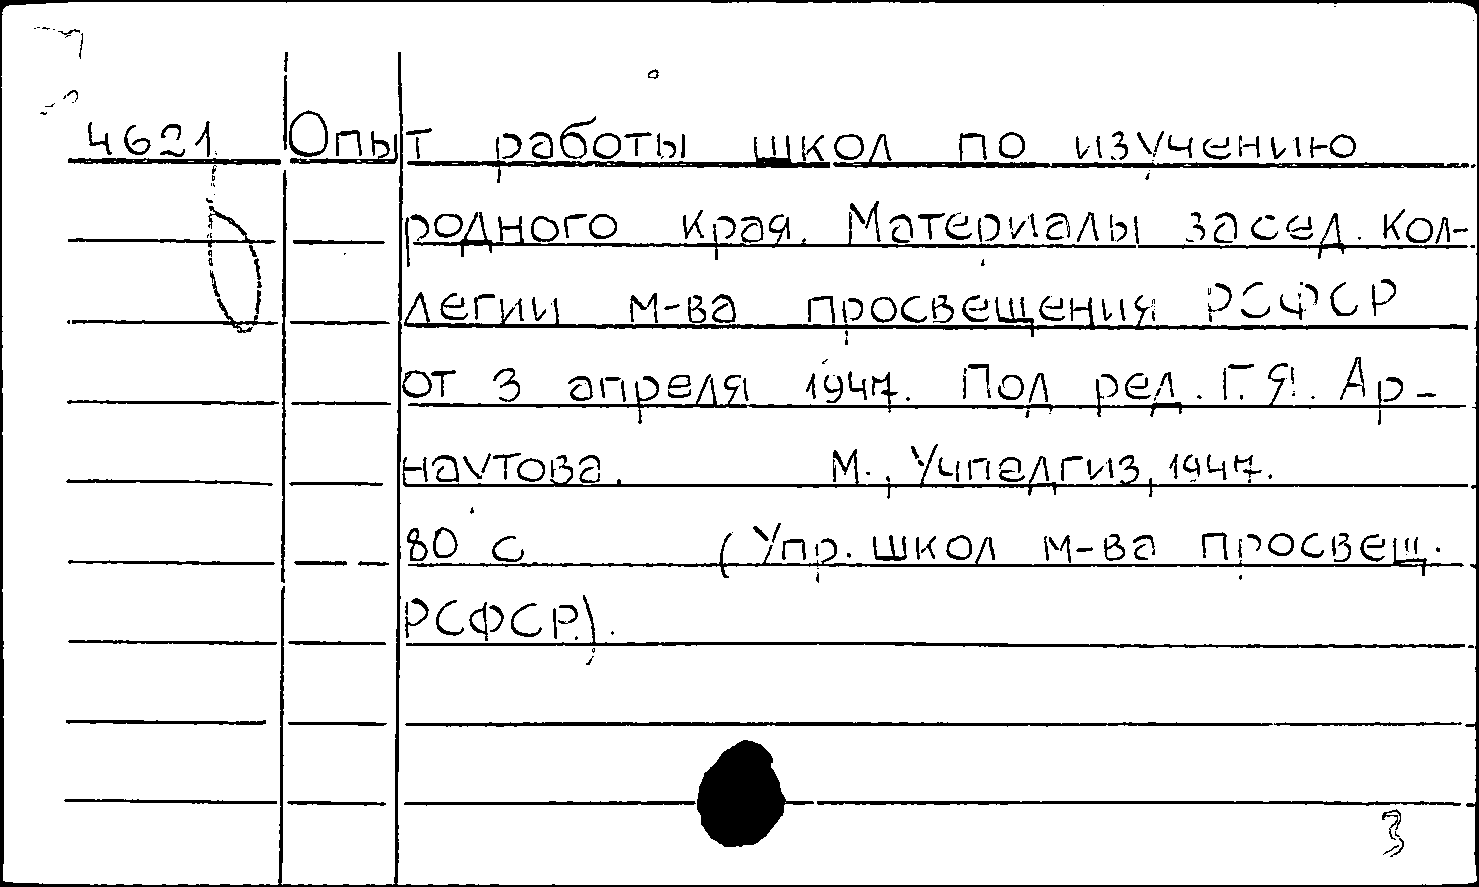 4621 Опыт работы школ по изучению
родного края. Материалы засед. кол-
легии м-ва просвещения РСФСР
от 3 апреля 1947. Под ред. Г.Я. Ар-
наутова. М., Учпедгиз, 1947.
80 с (Упр. школ м-ва просвещ.
РСФСР).
3